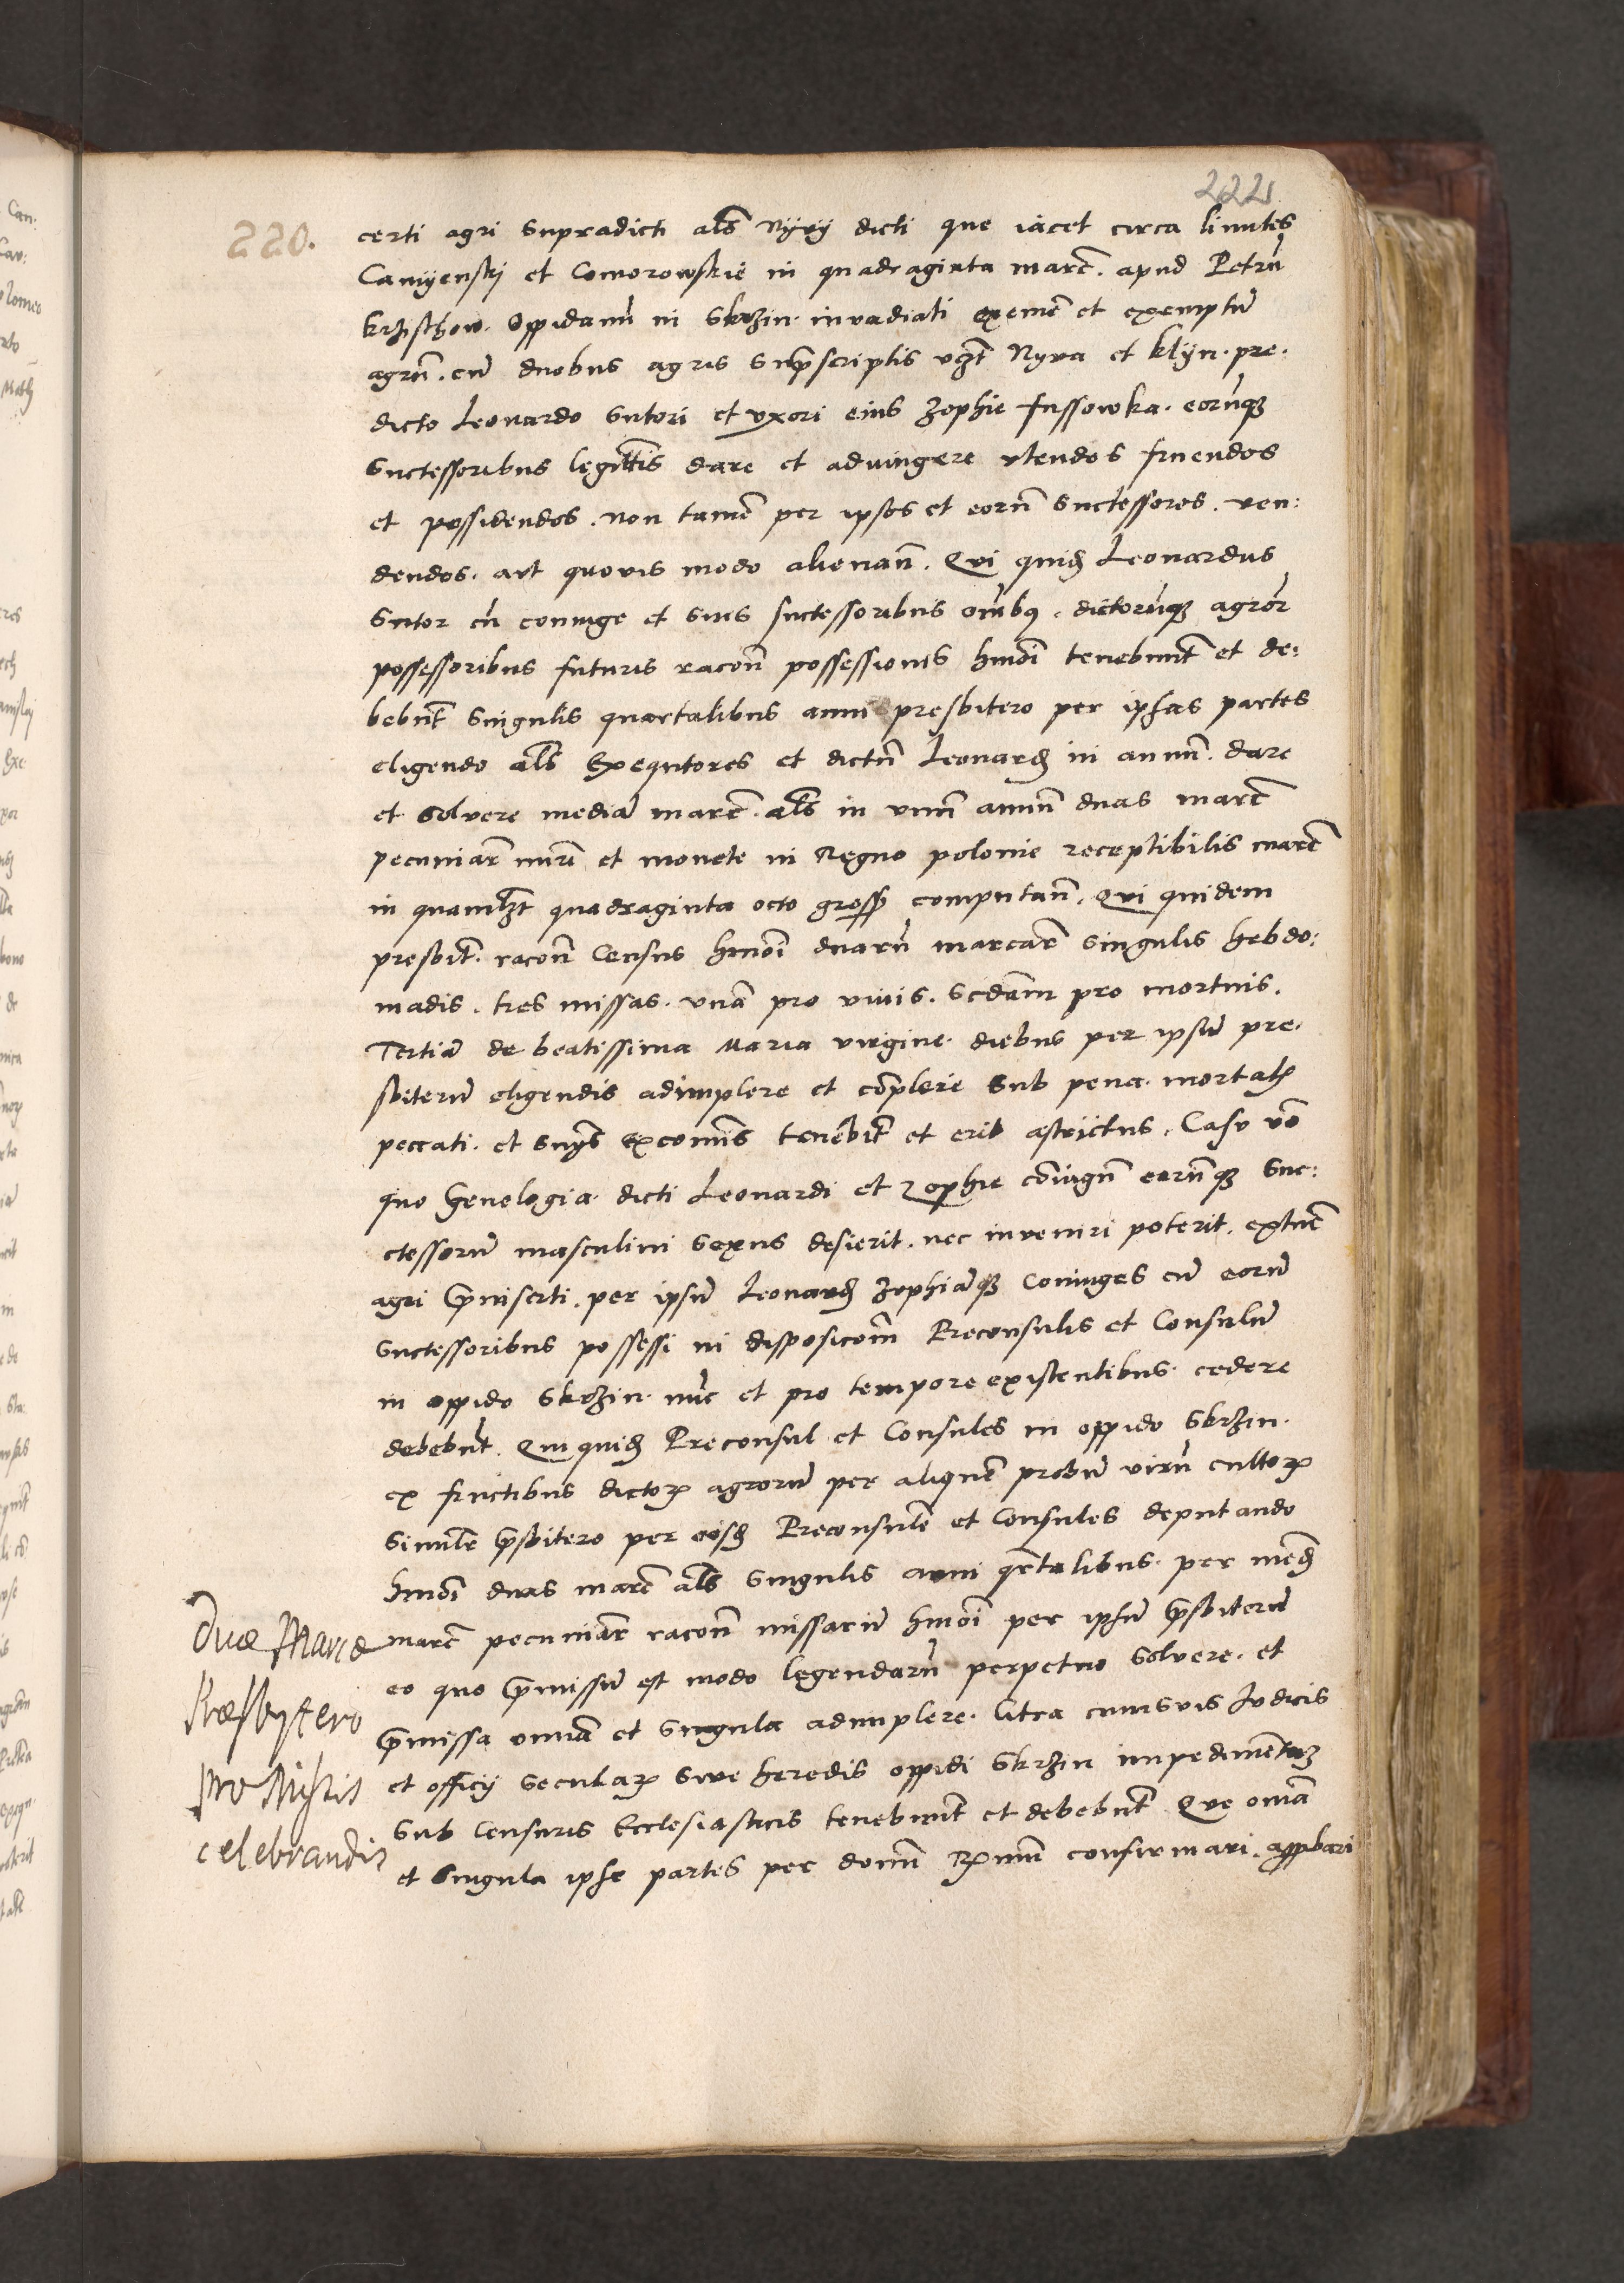 222
220.
certi agri supradicti als Nyvy dicti que iacet circa limites
Camyensky et Comorowskie in quadraginta marc. apud Petrū
krzischow. Oppidanū in Skrzin. invadiati exemēt et exemptū
agrū. cū duobus agris supscriptis vczt Nyva et klyn. pre.
dicto Leonardo Sutori et vxori eius Zophie fussowka. eorūqz
Successoribus legittīs dare et adiungere vtendos fruendos
et possidendos. non tamē per ipsos et eorū Successores. ven:
dendos. aut quovis modo alienań. Qui quidē Leonardus
Sutor cū coniuge et suis successoribus omībq. dictorūqz agrōr
possessoribus futuris racōn possessionis hmōi tenebunt et de:
bebūt singulis quartalibus anni presbitero per ipsas partes
eligendo als Exequtores et dictū Leonardū in annū. dare
et solvere mediā marc. als in vnū annū duas marc
pecuniar̄ nūri et monete in Regno polonie receptibilis marc
in quamlizt quadraginta octo gross computań. Qui quidem
presbit. racōn Census hmōi duarū marcar̄ singulis hebdo:
madis. tres missas. vnā pro vivis. Scdam pro mortuis.
Tertiā de beatissima Maria virgine. diebus per ipsū pre.
sbiterū eligendis adimplere et cōplere sub pena. mortal
peccati. et snys excomīs tenebit et erit astrictus. Casu vō
quo Genelogia. dicti Leonardi et Zophie cōiugū eorūqz suc:
cessorū masculini sexus desierit. nec inveniri poterit. extūc
agri p̄inserti. per ipsū Leonardū Zophiāqz Coniuges cū eorū
Successoribus possessi in disposicoīm Preconsulis et Consulū
in oppido Skrzin. nūc et pro tempore existentibus. cedere
debebūt. Qui quidē Preconsul et Consules in oppido Skrzin.
ex fructibus dictor agrorū per aliquē probū virū cultor
Similr p̄sbitero per eosd Preconsulē et Consules deputando
hmōi duas marc als singulis anni qrtalibus. per medē
marc pecuniar̄ racōn missarū hmōi per ipsū p̄sbiterū
eo quo p̄missū est modo legendarū perpetuo solvere. et
p̄missa omīa et singula adimplere. Citra cuiusvis Iudicis
et officij secular sive heredis oppidi Skrzin impedimentū
Sub Censuris Ecclesiasticis tenebunt et debebunt. Que omīa
et singula ipse partes per domū Rmum confirmari. app̄bari
Duæ Marcæ
Præsbytero
pro Missis
celebrandis